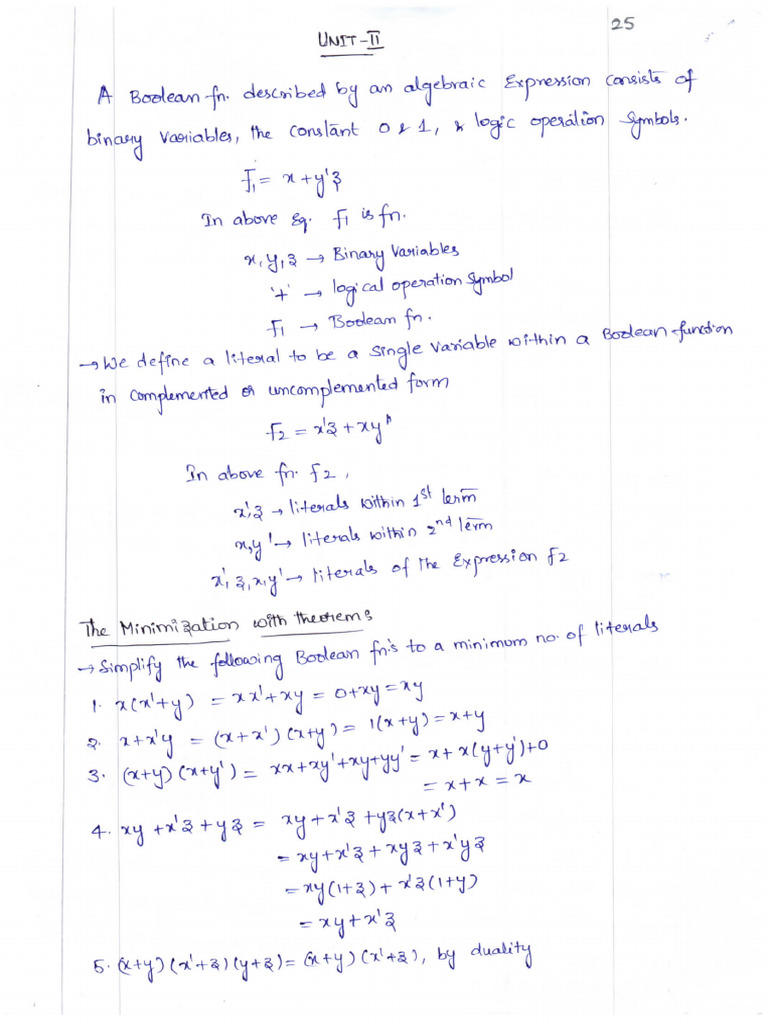 25
UNIT-II
A Boolean fn. described by an algebraic Expression consists of
binary variables, the constant 0 & 1, & logic operation symbols.
F1 = x + y'z
In above Eq. f1 is fn.
x, y, z → Binary Variables
'+' → logical operation symbol
F1 → Boolean fn.
→ We define a literal to be a single variable within a Boolean function
in complemented or uncomplemented form
F2 = x'z + xy'
In above fn. f2,
x', z → literals within 1st term
x, y' → literals within 2nd term
x', z, x, y' → literals of the Expression f2
The Minimization with theorems
→ Simplify the following Boolean fn's to a minimum no. of literals
1. x(x'+y) = xx'+xy = 0+xy = xy
2. x+x'y = (x+x')(x+y) = 1(x+y) = x+y
3. (x+y)(x+y') = xx+xy'+xy+yy' = x+x(y+y')+0
= x+x = x
4. xy+x'z+yz = xy+x'z+yz(x+x')
= xy+x'z+xyz+x'yz
= xy(1+z)+x'z(1+y)
= xy+x'z
5. (x+y)(x'+z)(y+z) = (x+y)(x'+z), by duality